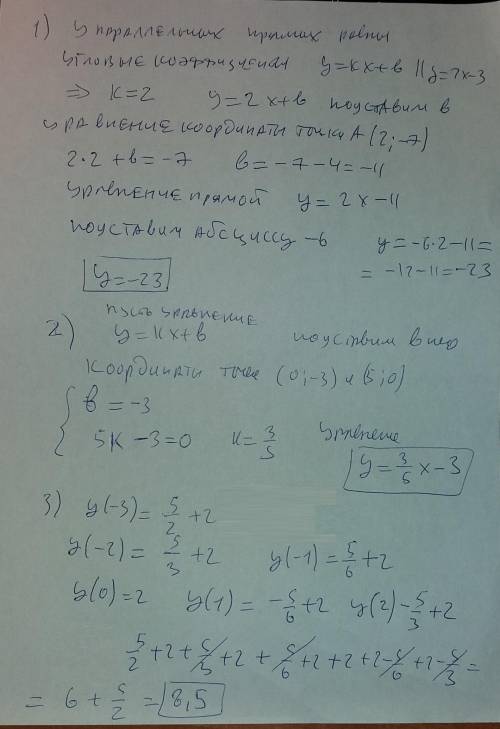 1) У параллельных прямых равны
угловые коэффициенты y=kx+b || y=2x-3
=> k=2 y=2x+b подставим в
уравнение координаты точки A(2;-7)
2·2+b=-7 b=-7-4=-11
уравнение прямой y=2x-11
подставим абсциссу -6 y=-6·2-11=
y=-23 =-12-11=-23
2) пусть уравнение
y=kx+b подставим в него
координаты точек (0;-3) и (5;0)
b=-3
5k-3=0 k=3/5 уравнение
y=3/5x-3
3) y(-3)=5/2+2
y(-2)=5/3+2 y(-1)=5/6+2
y(0)=2 y(1)=-5/6+2 y(2)-5/3+2
5/2+2+5/3+2+5/6+2+2+2-5/6+2-5/3=
=6+5/2=8,5